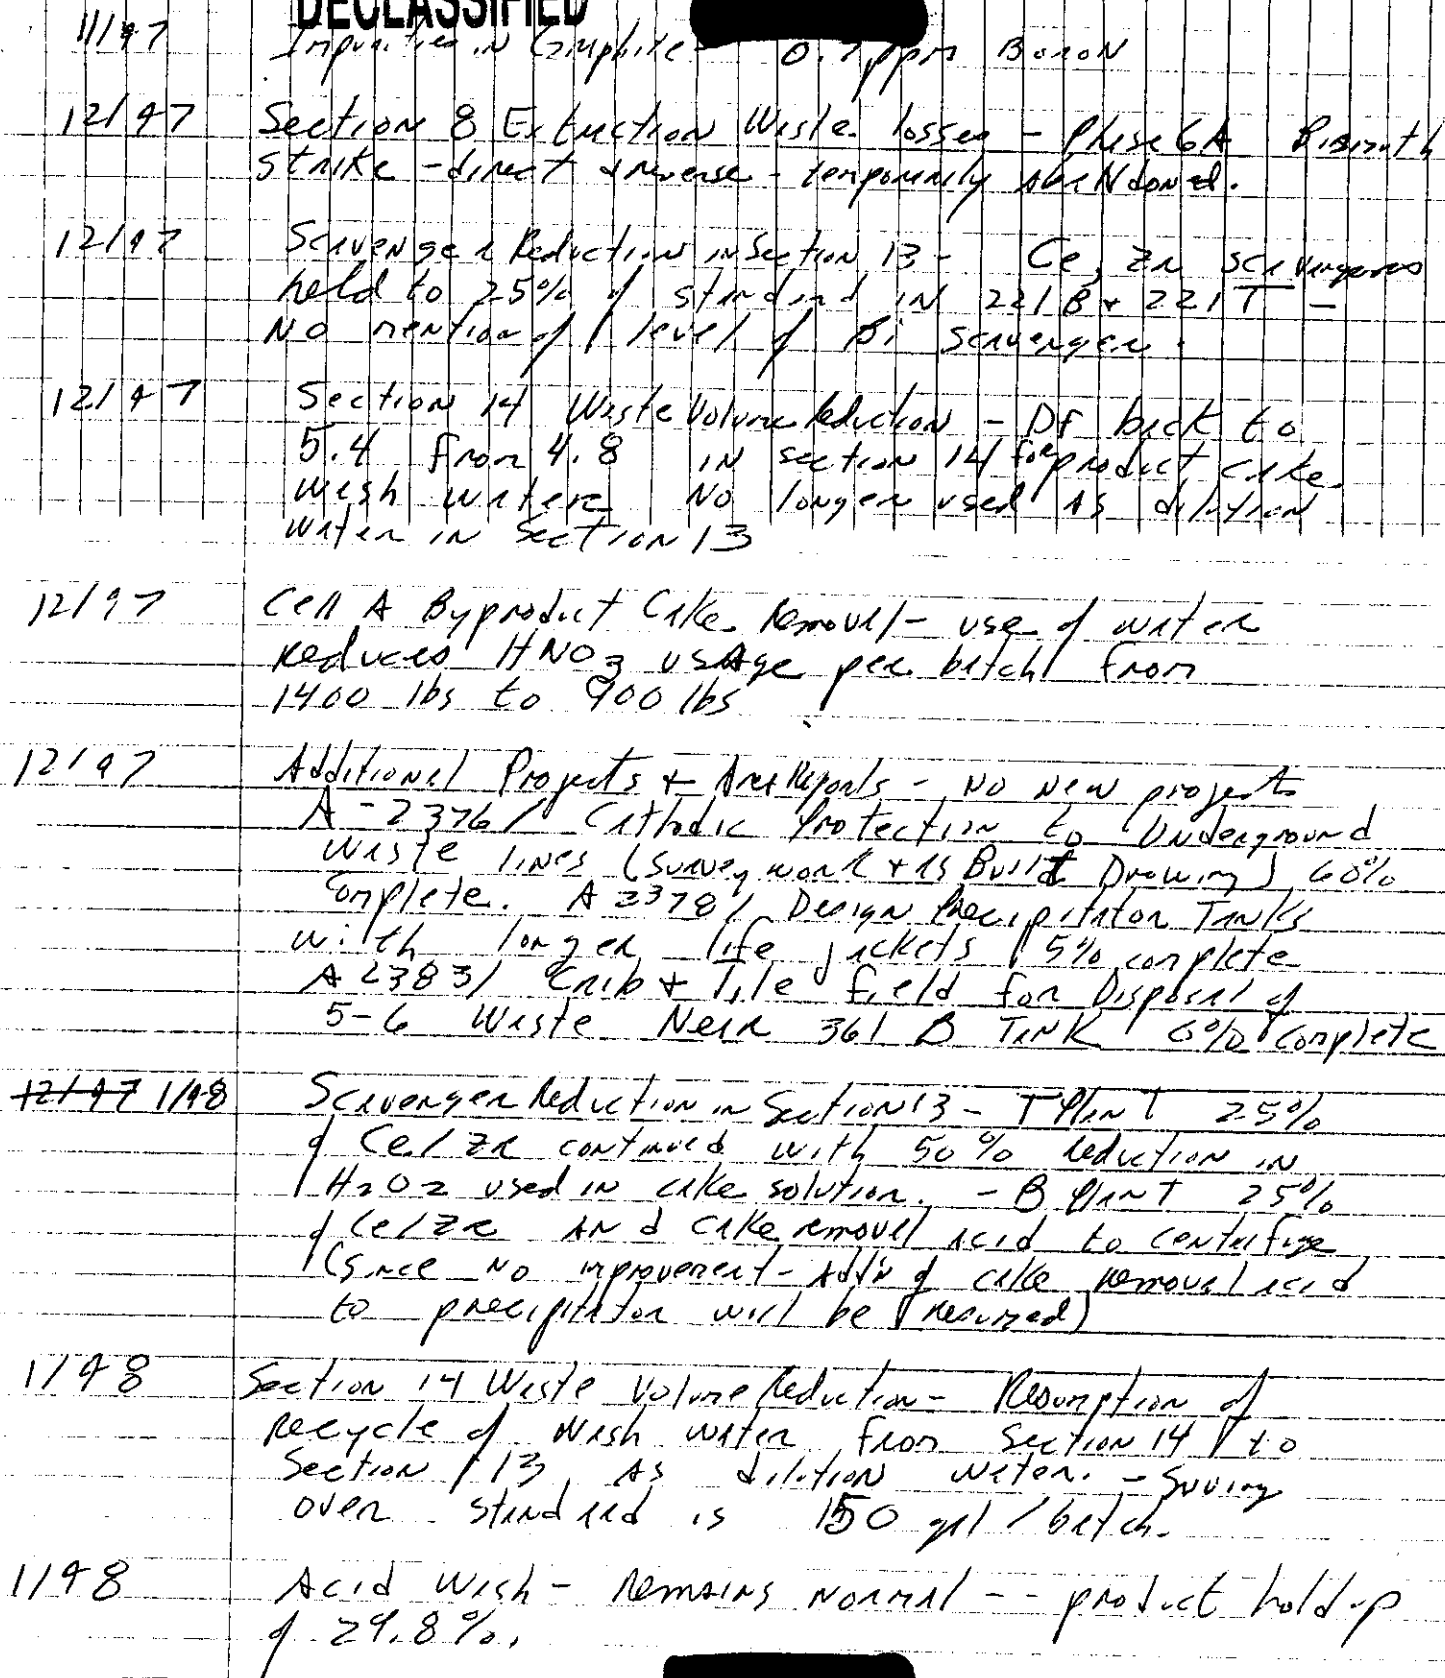 DECLASSIFIED
11/47 Impurities in Graphite - 0.7 ppm Boron
12/47 Section 8 Extraction Waste losses - Phase 6A Bismuth
strike - direct & reverse - temporarily abandoned.
12/47 Scavenger Reduction in Section 13 - Ce, Zr scavengers
held to 25% of standard in 221B & 221T -
No mention of level of Bi scavenger.
12/47 Section 14 Waste Volume Reduction - DF back to
5.4 from 4.8 in section 14 for product cake.
wash water No longer used as dilution
water in Section 13
12/47 Cell A Byproduct Cake Removal - use of water
reduces HNO3 usage per batch from
1400 lbs to 900 lbs
12/47 Additional Projects & Area Reports - No new projects
A-2376/ Cathodic Protection to Underground
Waste lines (Survey work & as Built Drawing) 60%
Complete. A 2378/ Design Precipitator Tanks
with longer life jackets 5% complete
A 2383/ Crib & Tile field for Disposal of
5-6 Waste Near 361 B Tank 0% complete
12/47 1/48 Scavenger Reduction in Section 13 - T Plant 25%
of Ce/Zr continued with 50% reduction in
H2O2 used in cake solution. - B Plant 25%
of Ce/Zr and cake removal acid to centrifuge
(Since no improvement - Add'n of cake removal acid
to precipitator will be resumed)
1/48 Section 14 Waste Volume Reduction - Resumption of
recycle of wash water from Section 14 to
Section 13 as dilution water. - Saving
over standard is 150 gal/batch.
1/48 Acid Wash - Remains normal -- product holdup
of 29.8%.